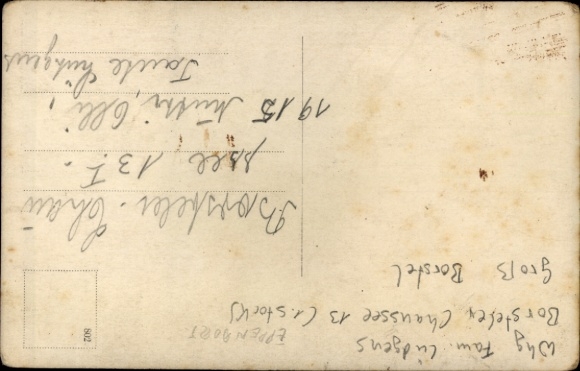 Whg Fam. Lüdgens
Borsteler Chaussee 13 (1. Stock)
Groß Borstel
EPPENDORF
802
Borsteler-Chau
ssee 13 I.
1915 Mutti, Olli,
Tante Lüdgens